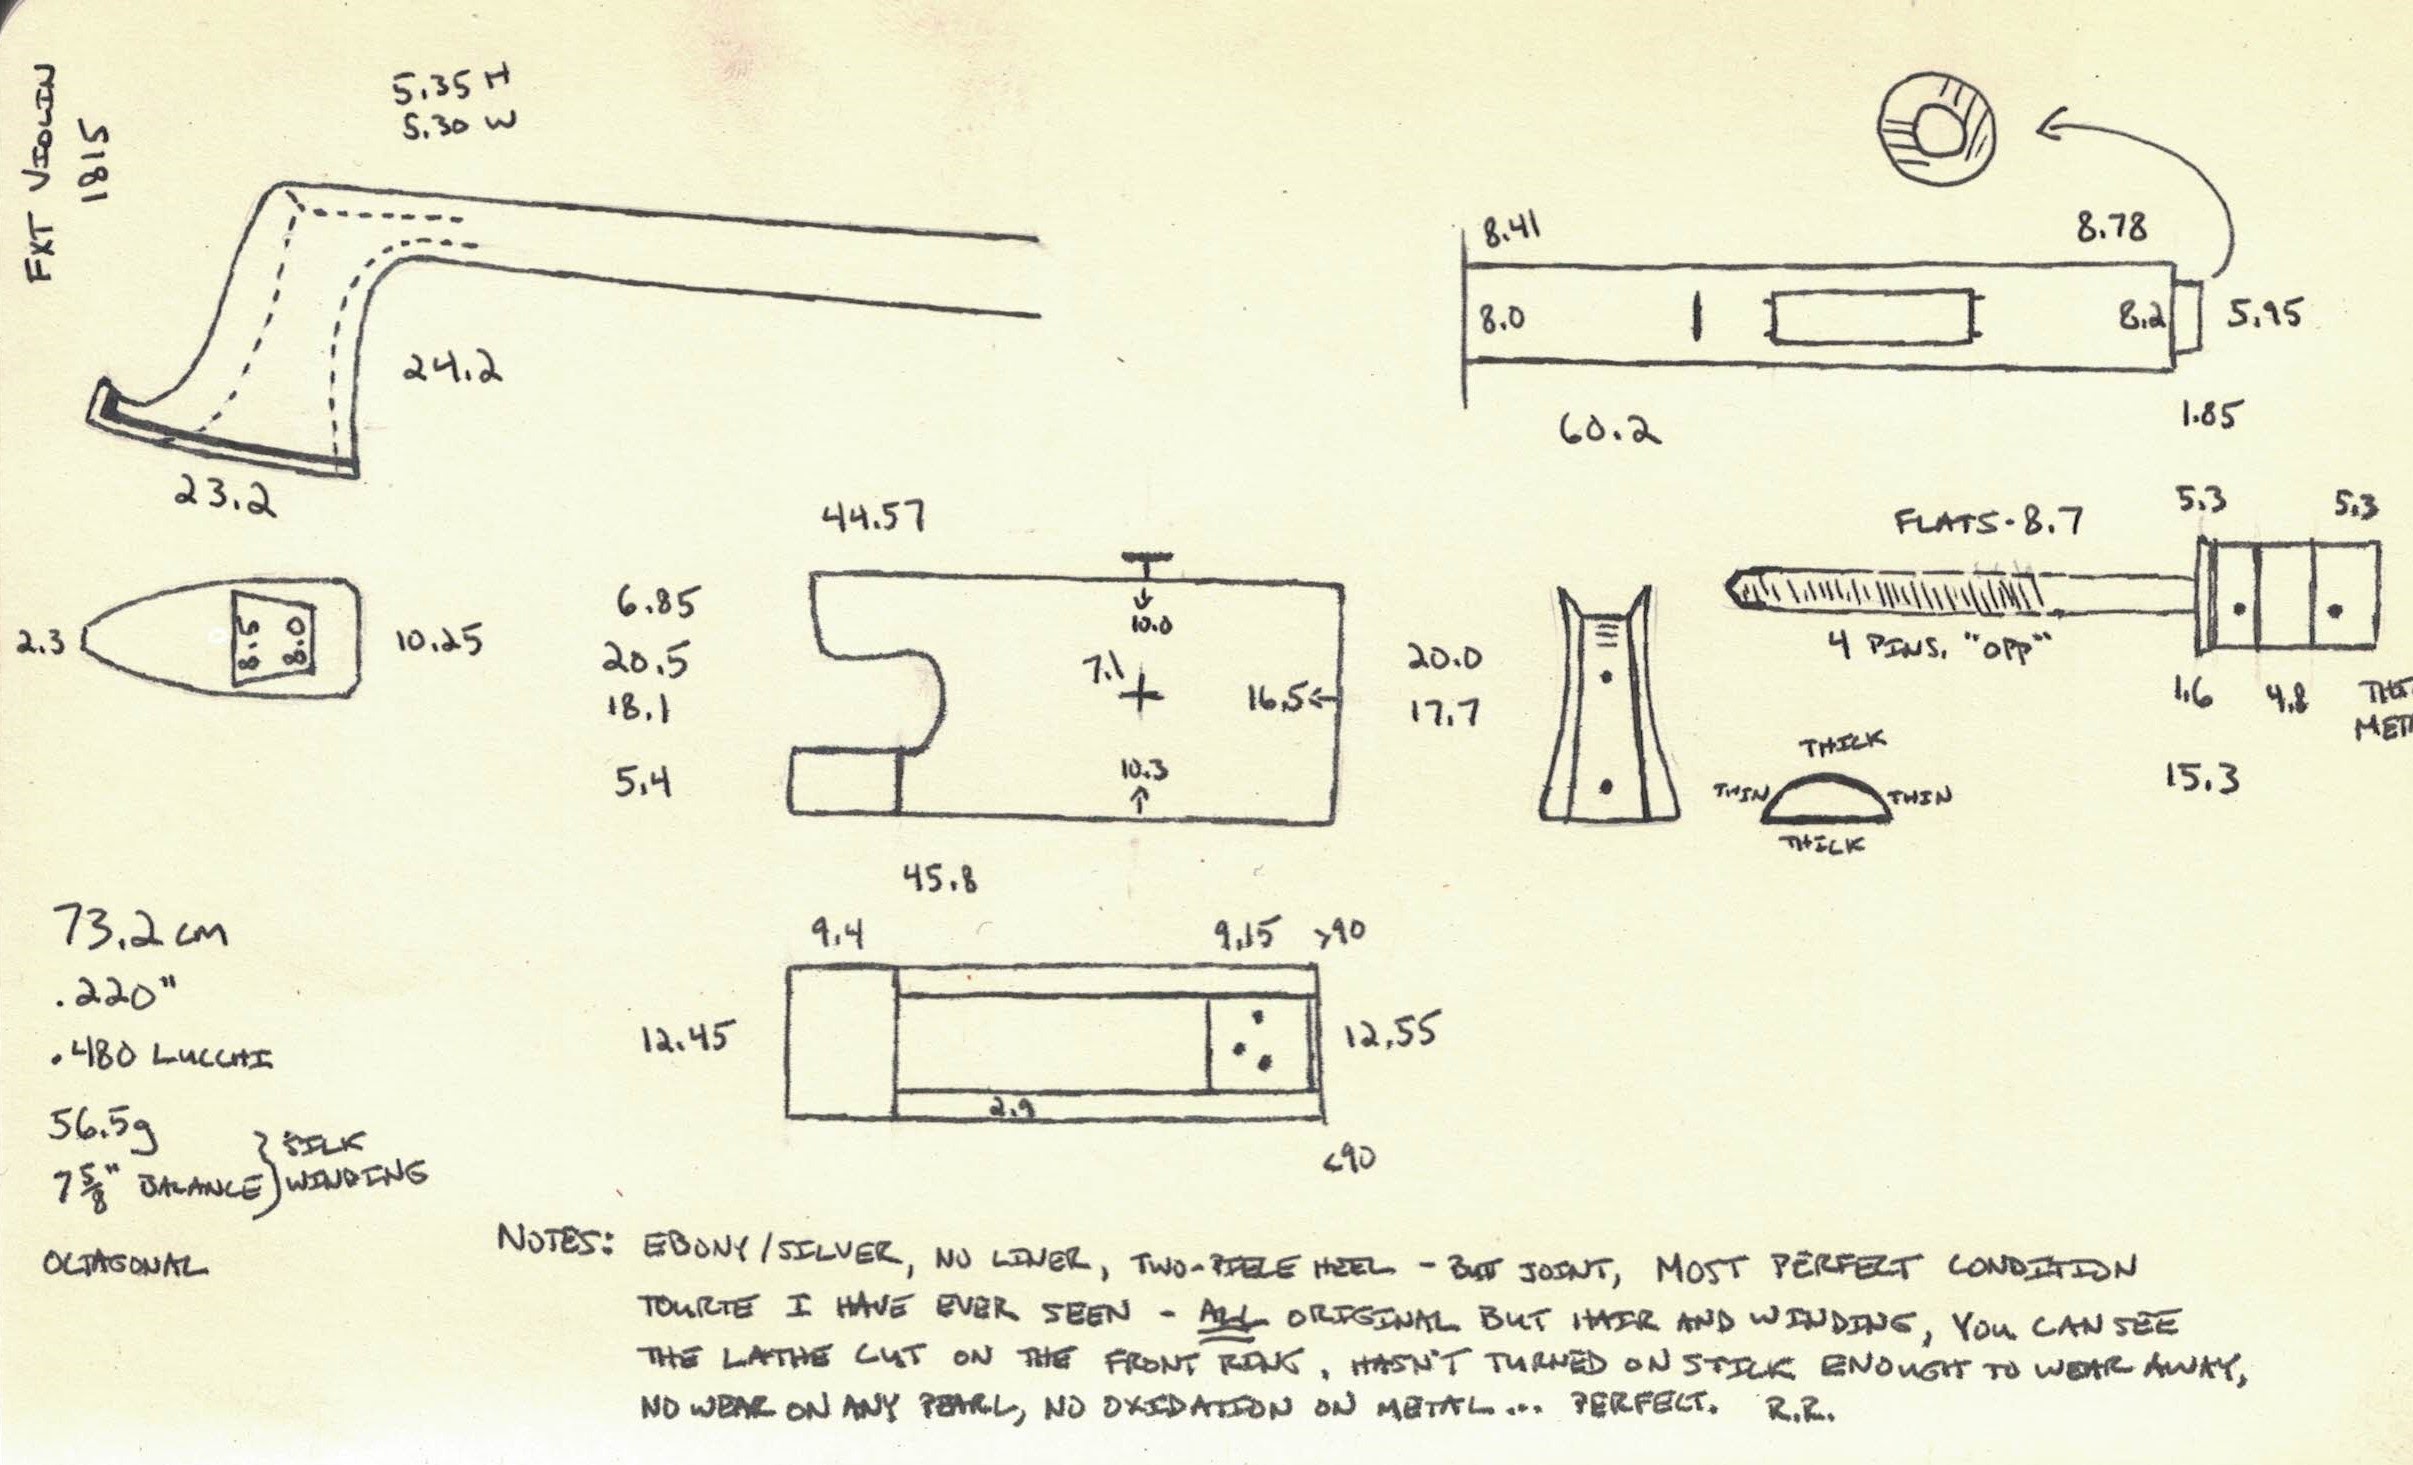 FXT VIOLIN
1815
5.35 H
5.30 W
24.2
23.2
8.41
8.78
8.0
8.2
5.95
60.2
1.85
2.3
8.5
8.0
10.25
44.57
6.85
20.5
18.1
5.4
10.0
7.1
16.5
10.3
20.0
17.7
45.8
FLATS-8.7
5.3
5.3
4 PINS, "OPP"
1.6
4.8
15.3
THICK
THIN
THIN
THICK
9.4
9.15
>90
12.45
12.55
2.9
<90
73.2 cm
.220"
.480 LUCCHI
56.5g
7 5/8" BALANCE
} SILK
WINDING
OCTAGONAL
NOTES: EBONY/SILVER, NO LINER, TWO-PIECE HEEL - BUT JOINT, MOST PERFECT CONDITION
TOURTE I HAVE EVER SEEN - ALL ORIGINAL BUT HAIR AND WINDING, YOU CAN SEE
THE LATHE CUT ON THE FRONT RING, HASN'T TURNED ON STICK ENOUGH TO WEAR AWAY,
NO WEAR ON ANY PEARL, NO OXIDATION ON METAL... PERFECT. R.R.